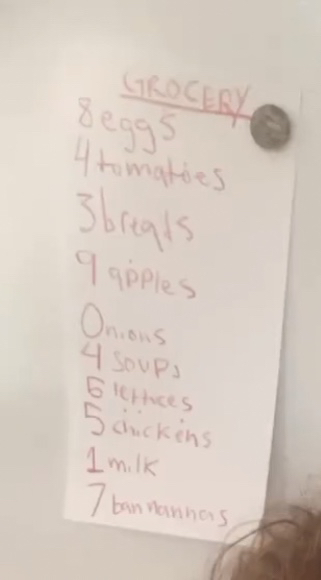 GROCERY
8 eggs
4 tomatoes
3 breads
9 apples
Onions
4 soups
6 lettuces
5 chickens
1 milk
7 bannannas